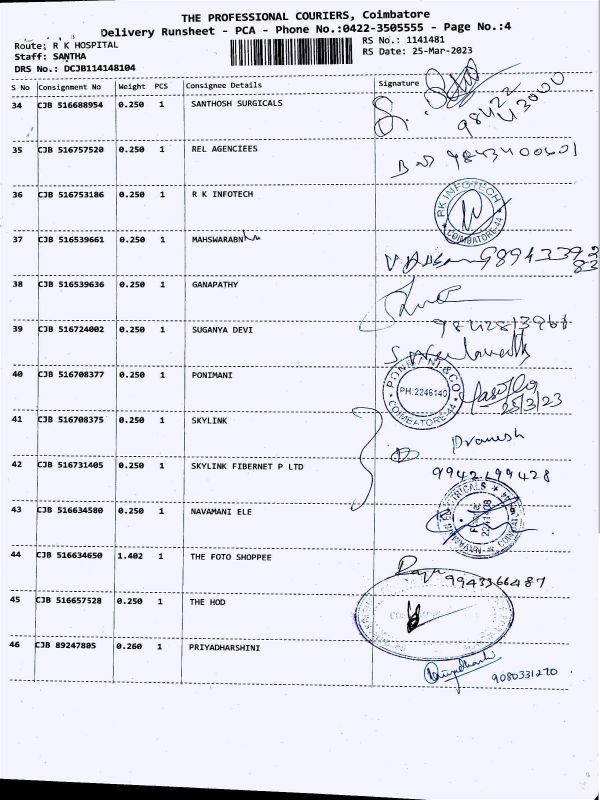 THE PROFESSIONAL COURIERS, Coimbatore
Delivery Runsheet - PCA - Phone No.:0422-3505555 - Page No.:4
Route; R K HOSPITAL
Staff: SANTHA
DRS No.: DCJB114148104
RS No.: 1141481
RS Date: 25-Mar-2023
S No Consignment No Weight PCS Consignee Details Signature
34 CJB 516688954 0.250 1 SANTHOSH SURGICALS
98422
43000
35 CJB 516757520 0.250 1 REL AGENCIEES
36 CJB 516753186 0.250 1 R K INFOTECH
RK INFOTECH
COIMBATORE-44
37 CJB 516539661 0.250 1 MAHSWARABN
38 CJB 516539636 0.250 1 GANAPATHY
39 CJB 516724002 0.250 1 SUGANYA DEVI
40 CJB 516708377 0.250 1 PONIMANI
PH:2246140
COIMBATORE-44
25/3/23
41 CJB 516708375 0.250 1 SKYLINK
Pranesh
42 CJB 516731405 0.250 1 SKYLINK FIBERNET P LTD
9942199428
43 CJB 516634580 0.250 1 NAVAMANI ELE
44 CJB 516634650 1.402 1 THE FOTO SHOPPEE
Raja
9943366487
45 CJB 516657528 0.250 1 THE HOD
46 CJB 89247805 0.260 1 PRIYADHARSHINI
9080331270